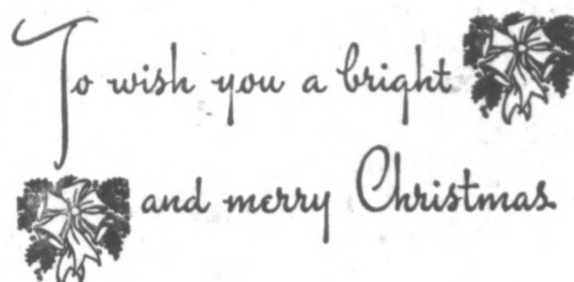 To wish you a bright
and merry Christmas